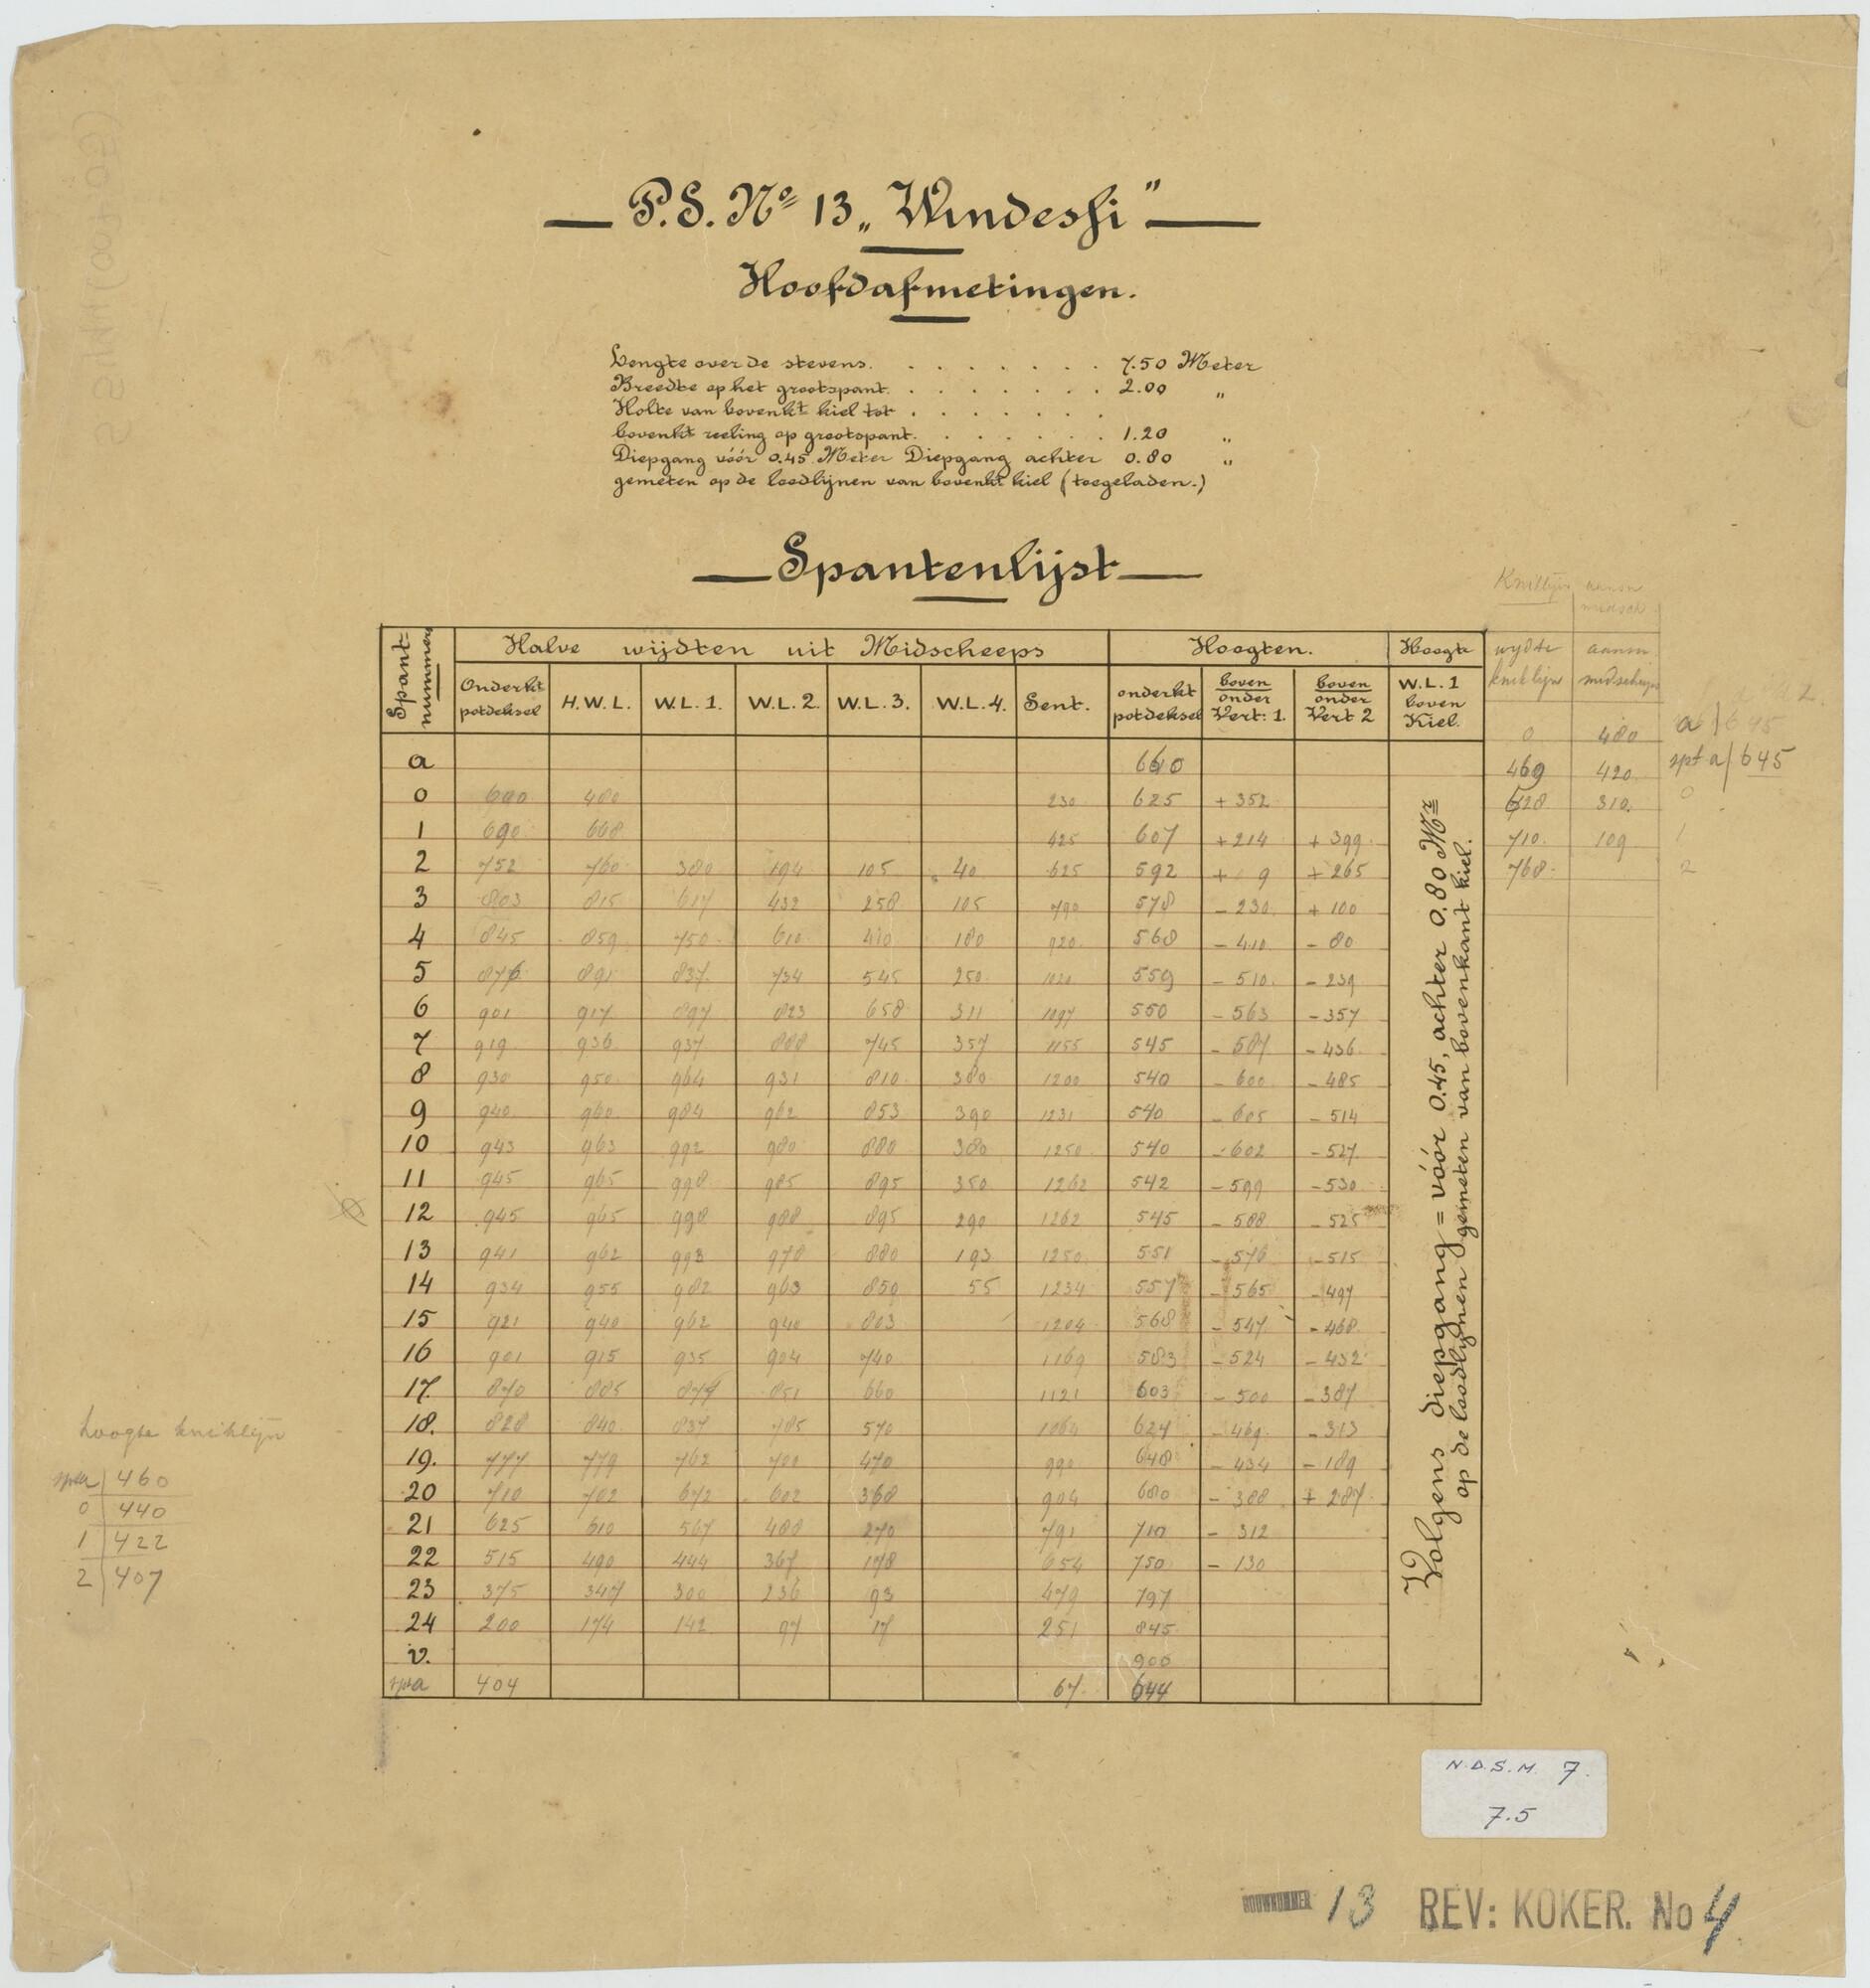 P.S. No 13 „Windessi”
Hoofdafmetingen.
Lengte over de stevens. . . . . . . . 7.50 Meter
Breedte op het grootspant. . . . . . . . 2.00 „
Holte van bovenkt kiel tot . . . . . . .
bovenkt reeling op grootspant. . . . . . 1.20 „
Diepgang vóór 0.45 Meter Diepgang achter 0.80 „
gemeten op de loodlijnen van bovenkt kiel (toegeladen.)
Spantenlijst
Kniklijn
Spant-nummer Halve wijdten uit Midscheeps Hoogten. Hoogte wydte kniklijn aanm. midscheeps
Onderkt potdeksel H.W.L. W.L.1. W.L.2. W.L.3. W.L.4. Sent. onderkt potdeksel boven/onder Vert: 1. boven/onder Vert 2 W.L.1 boven Kiel.
0 480 a 645
a 660 469 420 spt a 645
0 690 480 230 625 +352 628 310. 0
1 690 668 425 607 +214 +399 710. 109 1
2 752 760 380 194 105 40 625 592 + 9 +265 768 2
3 803 815 617 432 258 105 790 578 -230 +100
4 845 859 750 610 410 180 920 568 -410 -80
5 876 891 837 734 545 250 1020 559 -510 -239
6 901 917 897 823 658 311 1097 550 -563 -357
7 919 936 937 888 745 357 1155 545 -587 -436
8 930 950 964 931 810 380 1200 540 -600 -485
9 940 960 984 962 853 390 1231 540 -605 -514
10 943 963 992 980 880 380 1250 540 -602 -527
11 945 965 998 985 895 350 1262 542 -599 -530
12 945 965 998 988 895 290 1262 545 -588 -525
13 941 962 993 978 880 193 1250 551 -576 -515
14 934 955 982 963 850 55 1234 557 -565 -497
15 921 940 962 940 803 1204 568 -547 -468
16 901 915 935 904 740 1169 583 -524 -432
17. 870 885 877 851 660 1121 603 -500 -387
18. 828 840 837 785 570 1064 624 -469 -313
19. 777 779 762 700 470 990 648 -434 -189
20 710 702 672 602 368 904 680 -388 +287
21 625 610 567 488 270 791 710 -312
22 515 490 444 367 178 654 750 -130
23 375 347 300 236 93 479 797
24 200 174 142 97 17 251 845
v. 900
spa 404 67 644
Volgens diepgang = vóór 0.45, achter 0.80 Mr
op de loodlijnen gemeten van bovenkant kiel.
hoogte kniklijn
spa 460
0 440
1 422
2 407
N.D.S.M. 7.
7.5
BOUWNUMMER 13 REV: KOKER. No 4